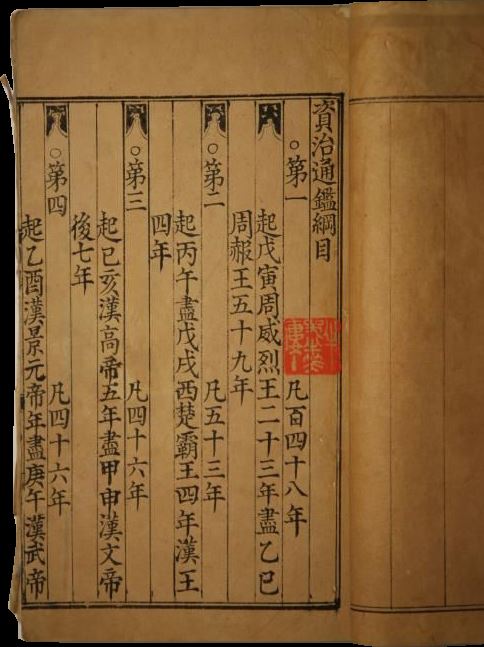 資治通鑑綱目
第一 凡百四十八年
起戊寅周威烈王二十三年盡乙巳
周赧王五十九年
第二 凡五十三年
起丙午盡戊戌西楚霸王四年漢王
四年
第三 凡四十六年
起已亥漢高帝五年盡甲申漢文帝
後七年
第四 凡四十六年
起乙酉漢景元帝年盡庚午漢武帝